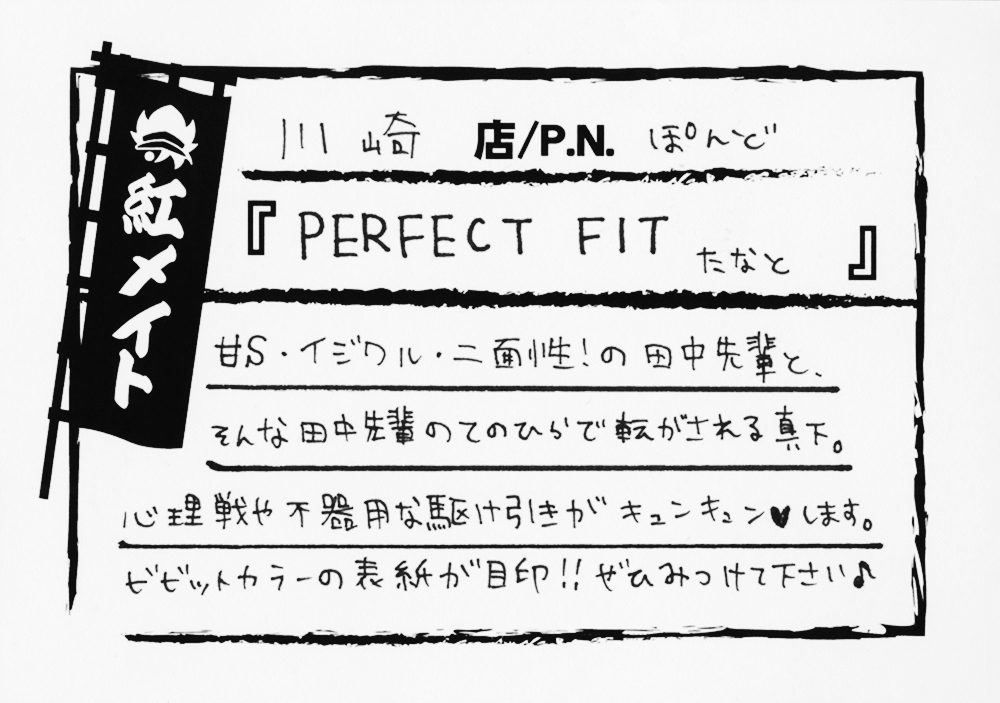 紅メイト
川崎 店/P.N. ぽんど
『PERFECT FIT たなと』
甘S・イジワル・二面性!の田中先輩と、
そんな田中先輩のてのひらで転がされる真下。
心理戦や不器用な駆け引きがキュンキュン♥します。
ビビットカラーの表紙が目印!!ぜひみつけて下さい♪